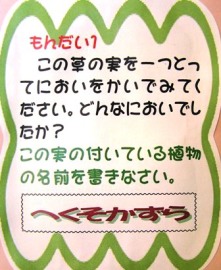 もんだい1
この草の実を一つとっ
てにおいをかいでみてく
ださい。どんなにおいでし
たか？
この実の付いている植物
の名前を書きなさい。
へくそかずら